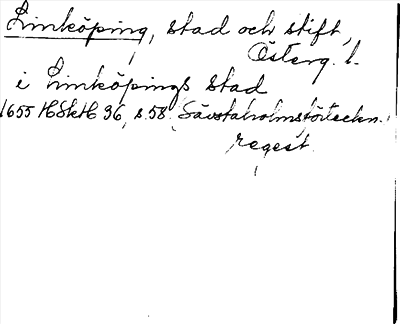 Linköping, stad och stift,
Österg. l.
i Linköpings stad
1655 HSkH 36, s. 58. Sävstaholmsförteckn.
regest.